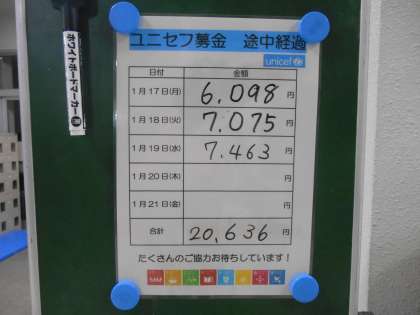 ユニセフ募金 途中経過
unicef
日付 金額
1月17日(月) 6,098 円
1月18日(火) 7,075 円
1月19日(水) 7,463 円
1月20日(木) 円
1月21日(金) 円
合計 20,636 円
たくさんのご協力お待ちしています!
ホワイトボードマーカー